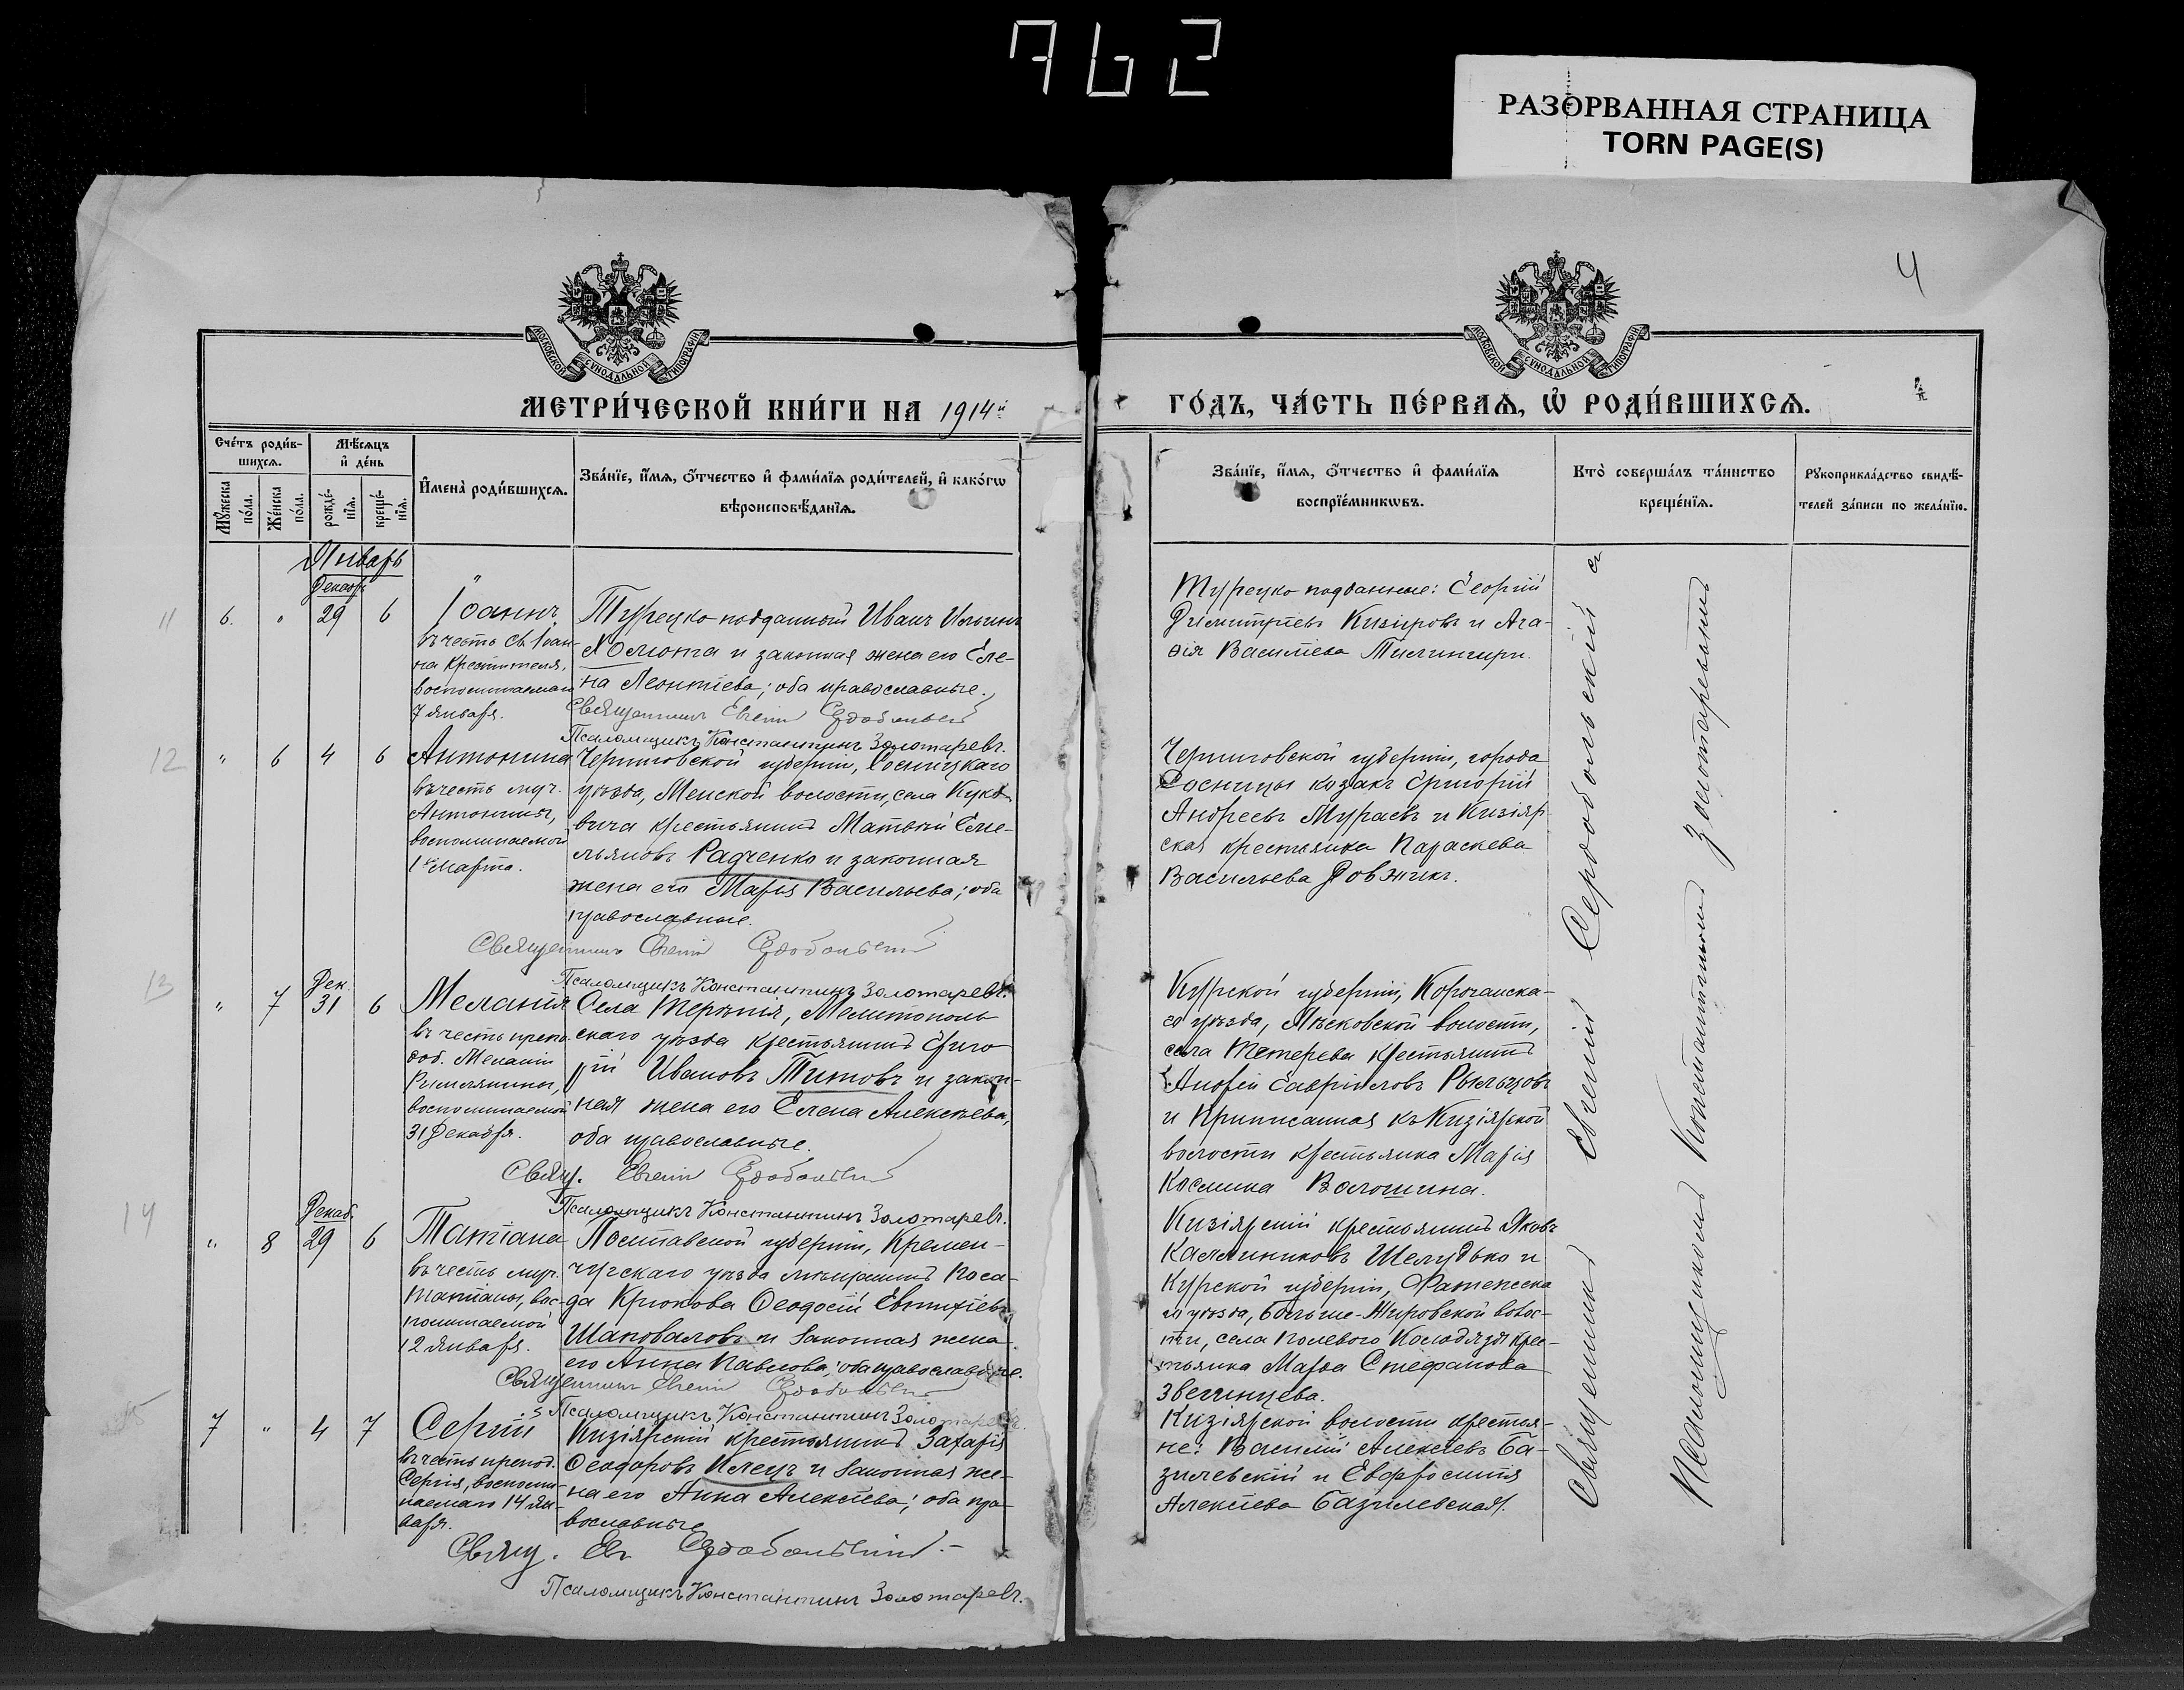 762
РАЗОРВАННАЯ СТРАНИЦА
TORN PAGE(S)
4
МОСКОВСКОЙ СѴНОДАЛЬНОЙ ТИПОГРАФІИ
МОСКОВСКОЙ СѴНОДАЛЬНОЙ ТИПОГРАФІИ
МЕТРИ́ЧЕСКОЙ КНИ́ГИ НА 1914й
ГО́ДЪ, ЧА́СТЬ ПЕ́РВАѦ, Ѡ҆ РОДИ́ВШИХСѦ.
Сче́тъ роди́в-
шихсѧ.
Мѣ́сѧцъ
и҆ де́нь
Мꙋ́жеска
по́ла.
Же́нска
по́ла.
рожде́-
нїѧ.
креще́-
нїѧ.
И҆мена̀ роди́вшихсѧ.
Зва́нїе, и҆́мѧ, ѻ҆́тчество и҆ фами́лїѧ роди́телей, и҆ како́гѡ
вѣроисповѣ́данїѧ.
Зва́нїе, и҆́мѧ, ѻ҆́тчество и҆ фами́лїѧ
воспрїе́мникѡвъ.
Кто̀ соверша́лъ та́инство
креще́нїѧ.
Рꙋкоприкла́дство свидѣ́-
телей за́писи по жела́нїю.
Январь
Декабр.
11
6.
"
29
6
Іоаннъ,
въ честь Св. Іоан-
на Крестителя,
воспоминаемаго
7 января.
Турецко-подданный Иванъ Ильинъ
и законная жена его Еле-
на Леонтіева; оба православные.
Священникъ Евгеній Сердобольскій
Псаломщикъ Константинъ Золотаревъ.
Турецко-подданные: Георгій
Димитріевъ Кизировъ и Ага-
ѳія Василіева
12
"
6
4
6
Антонина
въ честь муч.
Антонины,
воспоминаемой
1го Марта.
Черниговской губерніи, Сосницкаго
уѣзда, Менской волости, села Куко-
вича крестьянинъ Матвѣй Еме-
льяновъ Радченко и законная
жена его Марія Васильева; оба
православные.
Священникъ Евгеній Сердобольскій
Псаломщикъ Константинъ Золотаревъ.
Черниговской губерніи, города
Сосницы козакъ Григорій
Андреевъ Мураевъ и Кизіяр
ская крестьянка Параскева
Васильева Довжикъ.
13
"
7
Дек.
31
6
Меланія
въ честь препо
доб. Меланіи
Римлянины,
воспоминаемой
31 Декабря.
Села Терпѣнія, Мелитополь
скаго уѣзда крестьянинъ Григо
рій Ивановъ Титовъ и закон-
ная жена его Елена Алексѣева,
оба православные.
Свящ. Евгеній Сердобольскій
Псаломщикъ Константинъ Золотаревъ.
Курской губерніи, Корочанска-
го уѣзда, волости,
села Тетерева крестьянинъ
Гавріиловъ Рыльцовъ
и приписанная къ Кизіярской
волости крестьянка Марія
Космина Волошина.
14
"
8
Декаб.
29
6
Татіана
въ честь муч.
Татіаны, вос-
поминаемой
12 января.
Полтавской губерніи, Кремен-
чугскаго уѣзда мѣщанинъ поса-
да Крюкова Ѳеодосій Евтихіевъ
Шаповаловъ и законная жена
его Анна Павлова; оба православные.
Священникъ Евгеній Сердобольскій
Псаломщикъ Константинъ Золотаревъ.
Кизіярскій крестьянинъ Яковъ
Каллиниковъ Шелудько и
Курской губерніи, Фатежска
го уѣзда, Больше-Жировской волос-
ти, села Полевого Колодязя крес-
тьянка Марѳа Стефанова
Звегинцева.
15
7
"
4
7
Сергій
въ честь препод.
Сергія, воспоми-
наемаго 14 ян-
варя.
Кизіярскій крестьянинъ Захарія
Ѳеодоровъ и законная же-
на его Анна Алексѣева; оба пра-
вославные
Свящ. Ев. Сердобольскій.
Псаломщикъ Константинъ Золотаревъ.
Кизіярской волости крестья-
не: Василій Алексѣевъ Ба-
зилевскій и Евфросинія
Алексѣева Базилевская.
Священникъ Евгеній Сердобольскій съ
Псаломщикомъ Константиномъ Золотаревымъ